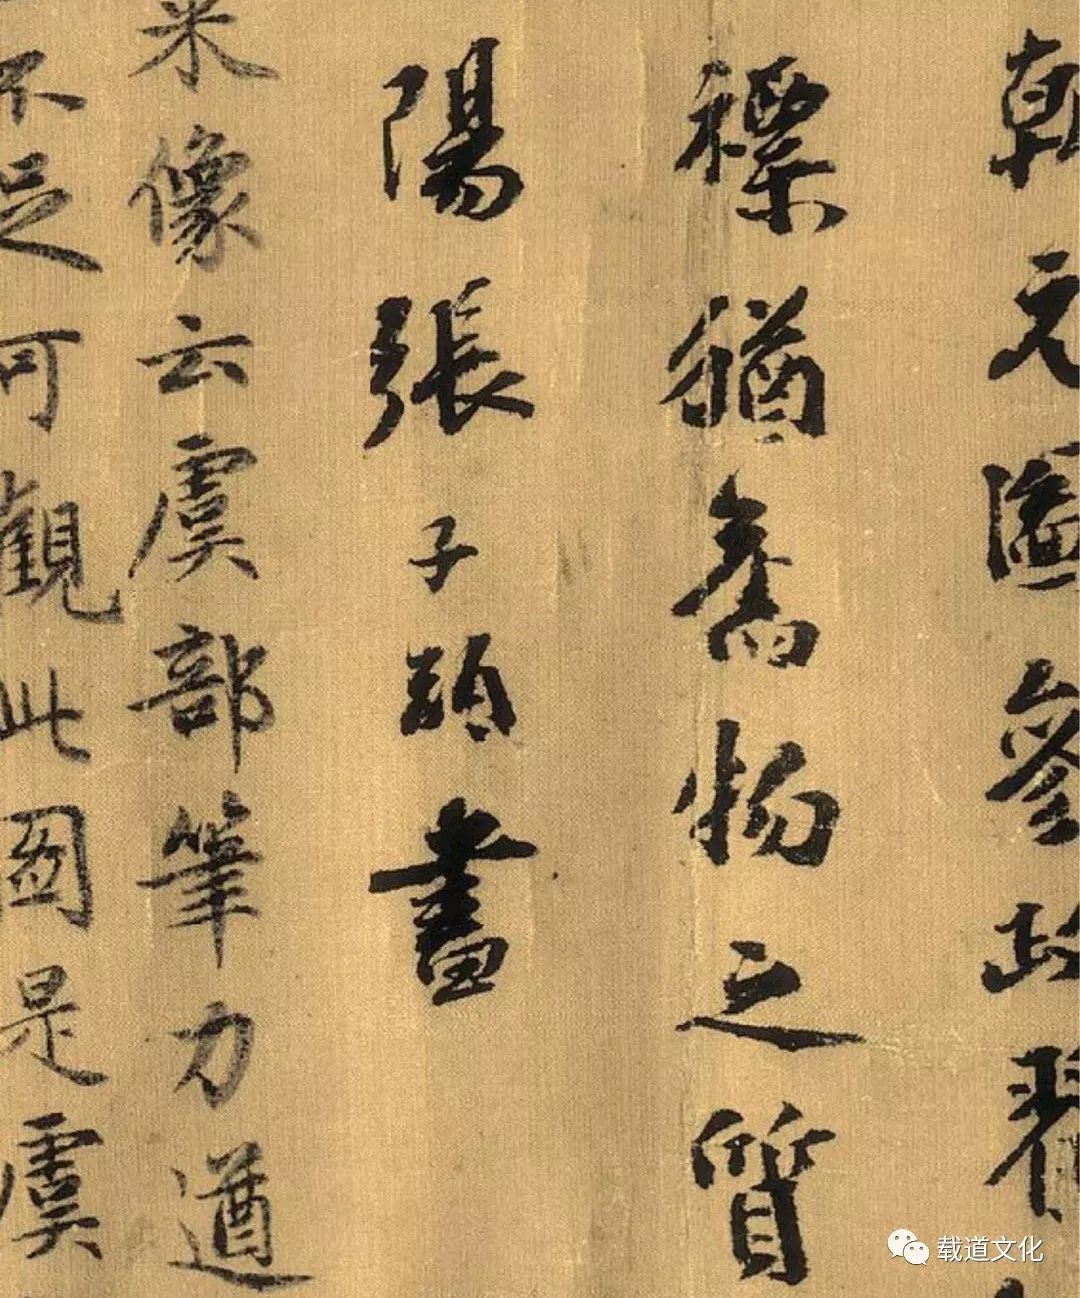 朝元圖參政翟
褾猶舊物之質
陽張子頭畫
米像云虞部筆力遒
不足可觀此圖是虞
载道文化